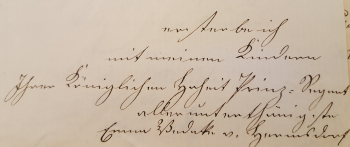 ersterbe ich
mit meinen Kindern
Ihrer Königlichen Hoheit Prinz-Regent
allerunterthänigste
Emma v. Hermsdorf